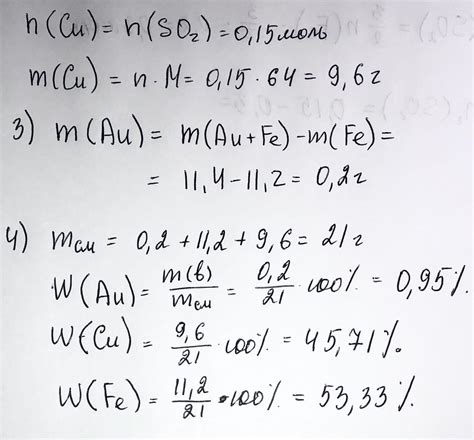 n(Cu) = n(SO₂) = 0,15 моль
m(Cu) = n · M = 0,15 · 64 = 9,6 г
3) m(Au) = m(Au + Fe) - m(Fe) =
= 11,4 - 11,2 = 0,2 г
4) mсм = 0,2 + 11,2 + 9,6 = 21 г
W(Au) = m(в)/mсм = 0,2/21 · 100% = 0,95%.
W(Cu) = 9,6/21 · 100% = 45,71%.
W(Fe) = 11,2/21 · 100% = 53,33%.